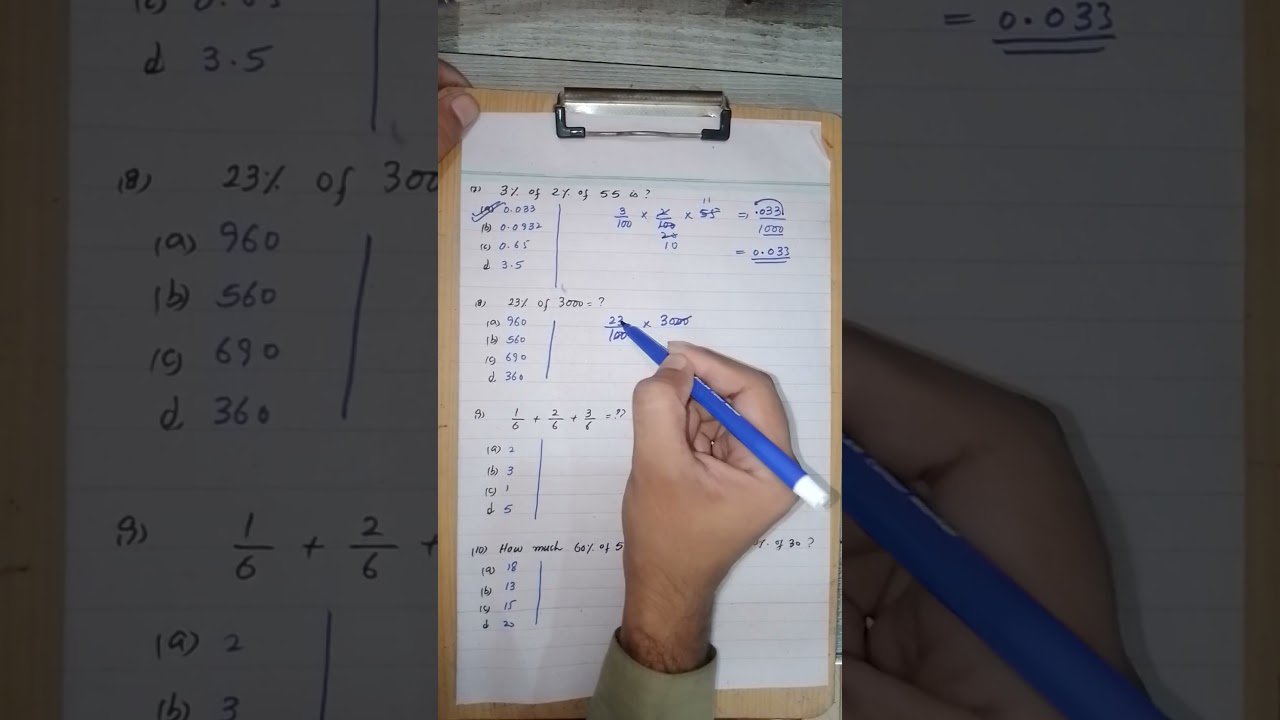 7) 3% of 2% of 55 is?
(a) 0.033
(b) 0.0932
(c) 0.65
d 3.5
3/100 × 2/100 × 55 => .033/1000
11
20
10
= 0.033
(8) 23% of 3000 = ?
(a) 960
(b) 560
(c) 690
d. 360
23/100 × 3000
9) 1/6 + 2/6 + 3/6 = ??
(a) 2
(b) 3
(c) 1
d 5
(10) How much 60% of 5 % of 30 ?
(a) 18
(b) 13
(c) 15
d 20